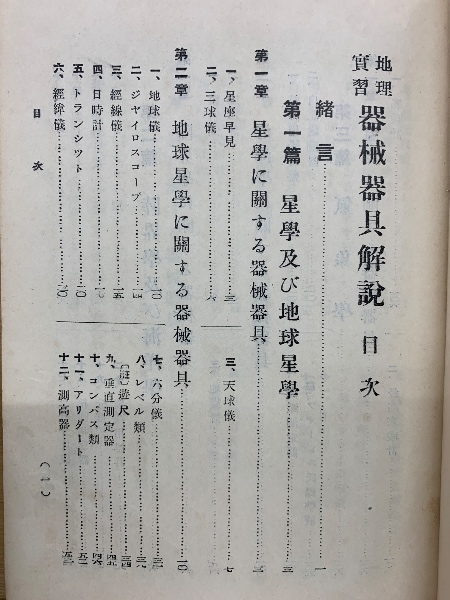 地理實習 器械器具解說 目次
緒言……一
第一篇 星學及び地球星學……三
第一章 星學に關する器械器具……三
一、星座早見……三
二、三球儀……六
三、天球儀……七
第二章 地球星學に關する器械器具……一〇
一、地球儀……一〇
二、ジヤイロスコープ……一四
三、經線儀……一五
四、日時計……一七
五、トランシツト……二〇
六、經緯儀
七、六分儀
八、レベル類……二九
〔註〕遊尺……三四
九、垂直測定器……四五
十、コンパス類……四六
十一、アリダート……五一
十二、測高器
目次
（一）